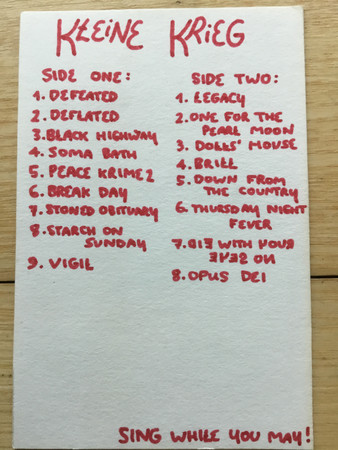 KLEINE KRIEG
SIDE ONE:
1. DEFEATED
2. DEFLATED
3. BLACK HIGHWAY
4. SOMA BATH
5. PEACE KRIME 2
6. BREAK DAY
7. STONED OBITUARY
8. STARCH ON
SUNDAY
9. VIGIL
SIDE TWO:
1. LEGACY
2. ONE FOR THE
PEARL MOON
3. DOLLS' HOUSE
4. BRILL
5. DOWN FROM
THE COUNTRY
6. THURSDAY NIGHT
FEVER
7. DIE WITH YOUR
EYES ON
8. OPUS DEI
SING WHILE YOU MAY!